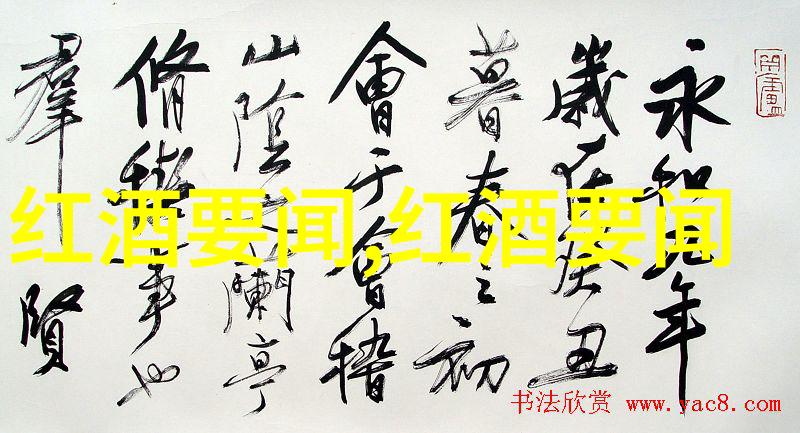 永和九年
歲在癸丑
暮春之初
會于會稽
山陰之蘭亭
脩稧事也
羣賢
红酒要闻,红酒要闻
书法欣赏 www.yac8.com